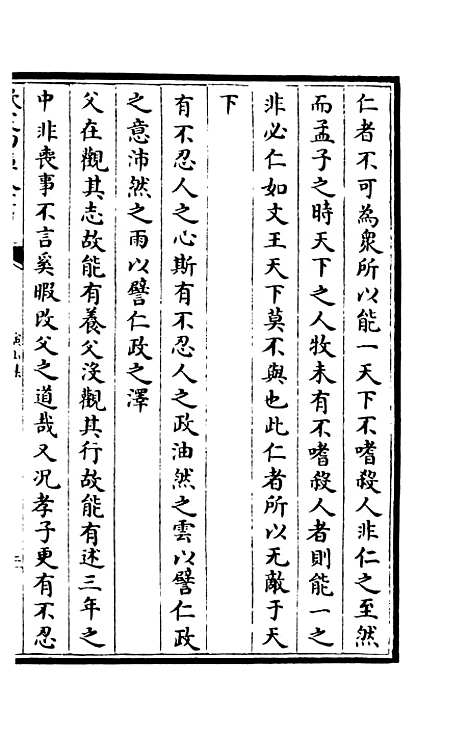 仁者不可為衆所以能一天下不嗜殺人非仁之至然
而孟子之時天下之人牧未有不嗜殺人者則能一之
非必仁如文王天下莫不與也此仁者所以无敵于天
下
有不忍人之心斯有不忍人之政油然之雲以譬仁政
之意沛然之雨以譬仁政之澤
父在觀其志故能有養父没觀其行故能有述三年之
中非喪事不言奚暇改父之道哉又况孝子更有不忍